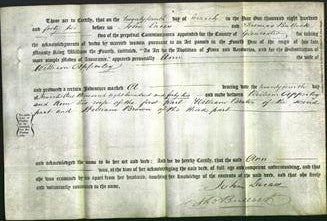 These are to Certify, that on the twentysixth day of March in the Year One thousand eight hundred
and forty six before us John Lucas and Thomas Bullock
two of the perpetual Commissioners appointed for the County of Gloucester for taking
the acknowledgments of deeds by married women, pursuant to an Act passed in the Fourth Year of the reign of the late
King William the Fourth, "An Act for the Abolition of Fines and Recoveries, and for the Substitution of
more simple Modes of Assurance," appeared personally Ann
William Apperley
and produced a certain Indenture marked A bearing date the
and made between William Apperley
and Ann his wife of the first part William of the second
part and William Brown of the third part
and acknowledged the same to be her act and deed: And we do hereby Certify, that the said Ann
was, at the time of her acknowledging the said deed, of full age and competent understanding, and that
she was examined by us apart from her husband, touching her knowledge of the contents of the said deed, and that she freely
and voluntarily consented to the same.
John Lucas
Thos Bullock